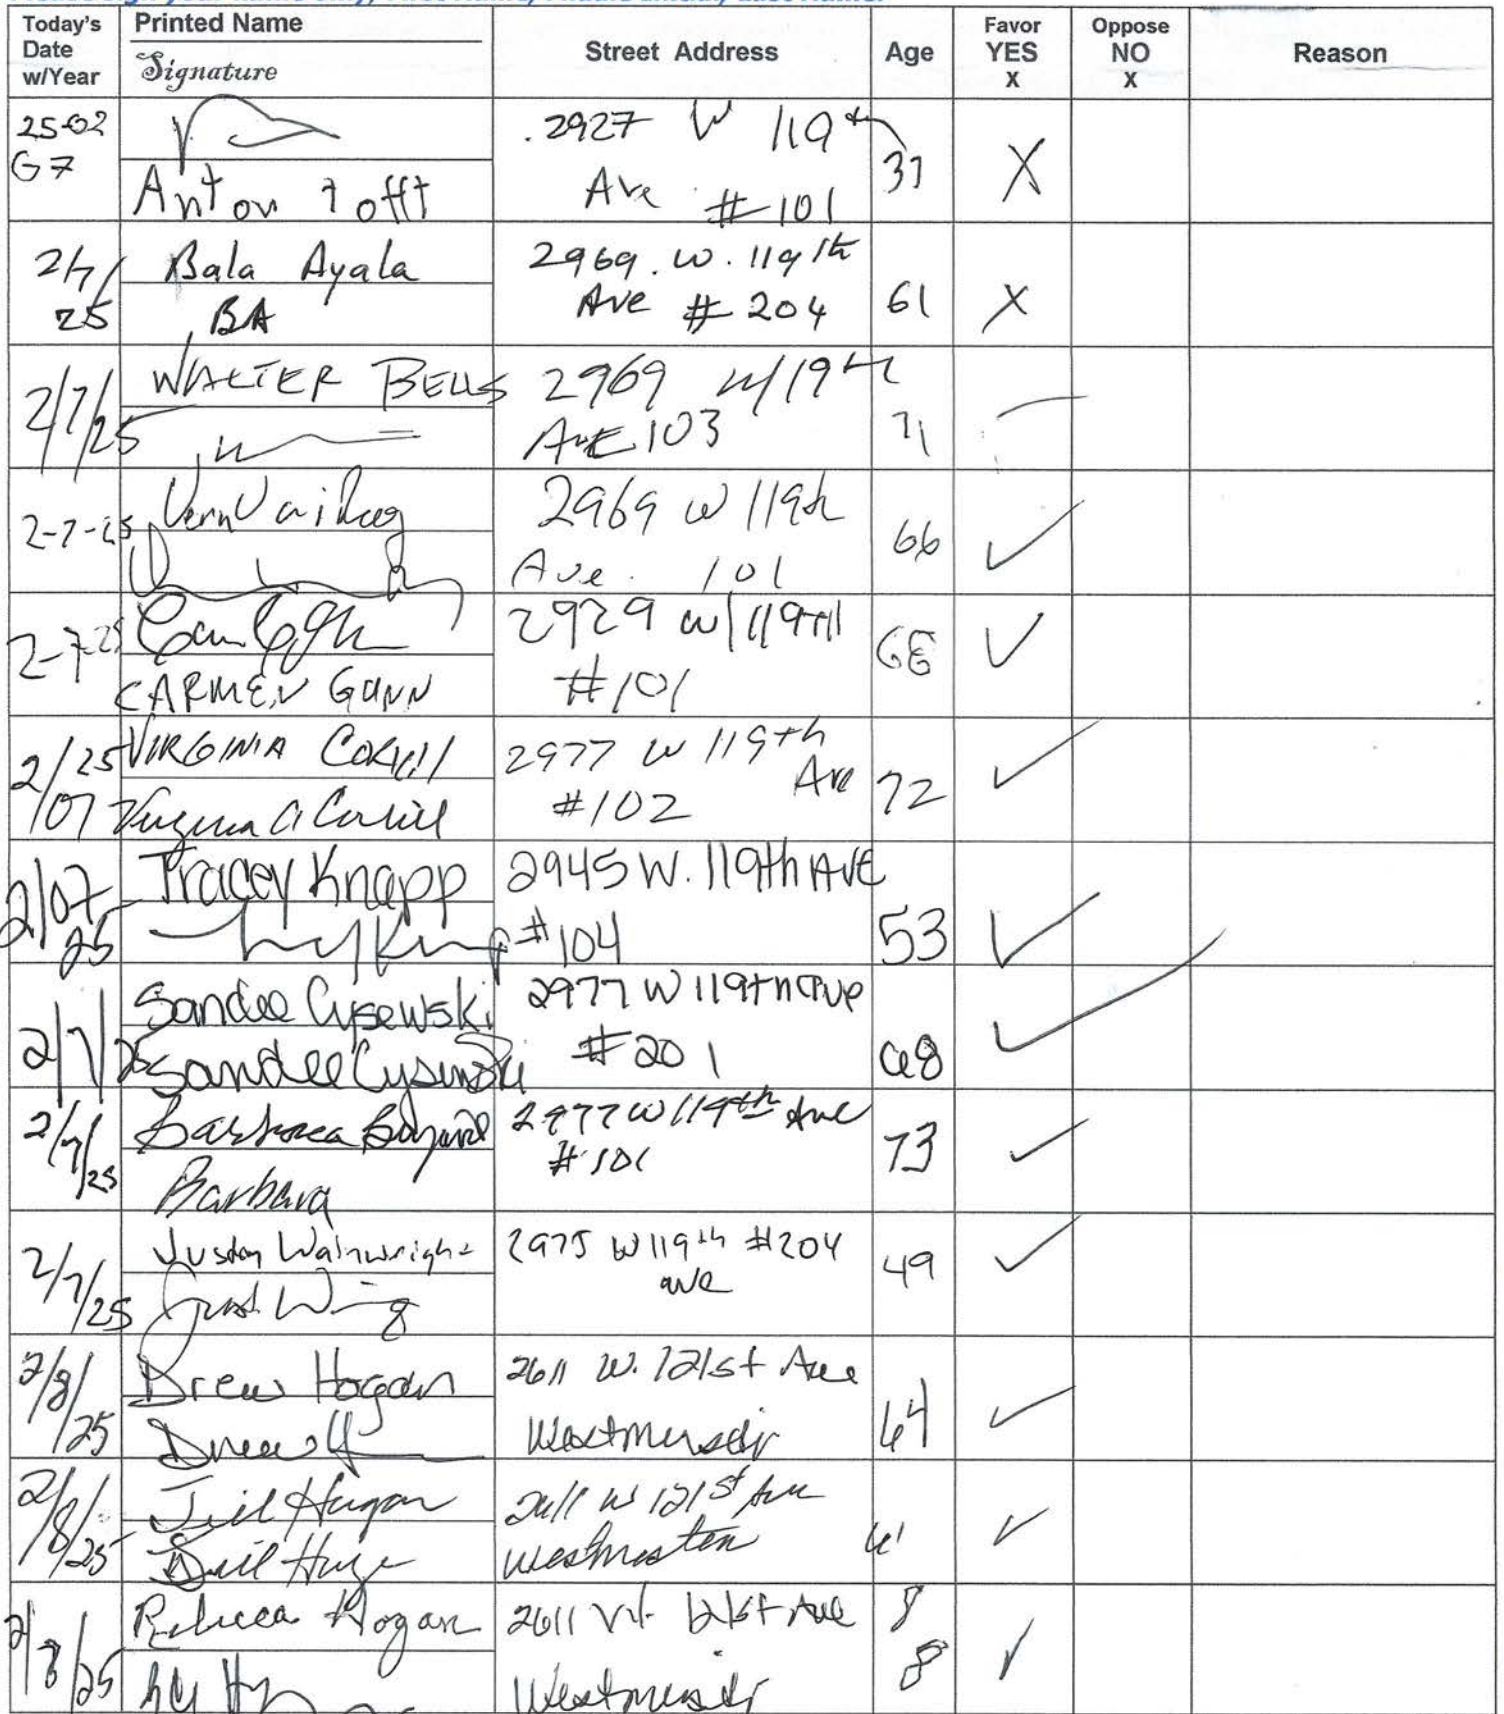 Today's Date w/Year
Printed Name
Signature
Street Address
Age
Favor YES X
Oppose NO X
Reason
25-02
G7
Anton Tofft
2927 W 119th
Ave #101
X
2/7/25
Bala Ayala
BA
2969. W. 119th
Ave # 204
61
X
2/7/25
WALTER BELLS
2969 W 119th
Ave 103
71
2-7-25
2969 W 119th
Ave. 101
66
2-7-25
CARMEN GUNN
2929 W 119th
#101
2/07 25
VIRGINIA
Virginia A
2977 W 119th
Ave
#102
72
2/07 25
Tracey Knapp
2945 W. 119th AVE
#104
53
2/7/25
Sandee Cysewski
Sandee Cysewski
2977 W 119th Ave
#201
68
2/7/25
Barbara
Barbara
2977 W 119th Ave
#101
73
2/7/25
Wainwright
2975 W 119th #204
ave
49
2/8/25
Drew Hogan
Drew H
2611 W. 121st Ave
64
2/8/25
2611 W 121st Ave
Westminster
2/8/25
Rebecca Hogan
2611 W. 121st Ave
8
8